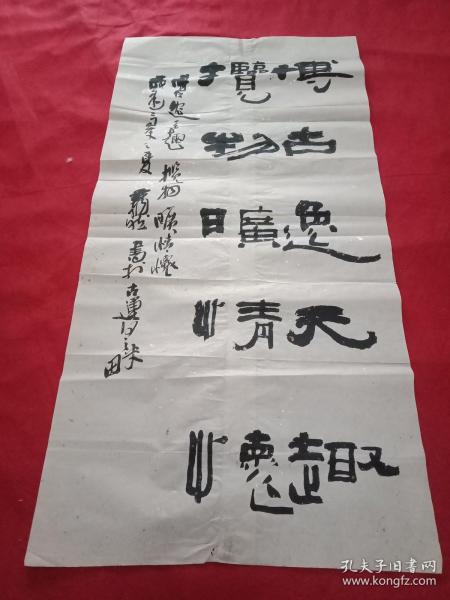 博古逸天趣
攬物曠情懷
博古逸天趣 攬物曠情懷
書於古運河之
孔夫子旧书网
www.kongfz.com